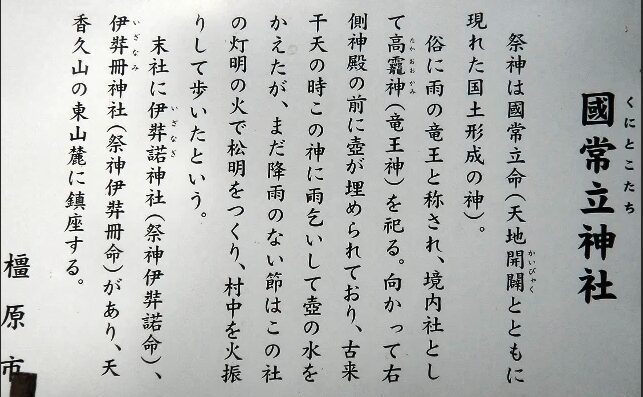 國常立神社
くにとこたち
祭神は國常立命(天地開闢とともに
かいびゃく
現れた国土形成の神)。
俗に雨の竜王と称され、境内社とし
て高龗神(竜王神)を祀る。向かって右
たかおおかみ
側神殿の前に壺が埋められており、古来
干天の時この神に雨乞いして壺の水を
かえたが、まだ降雨のない節はこの社
の灯明の火で松明をつくり、村中を火振
りして歩いたという。
末社に伊弉諾神社(祭神伊弉諾命)、
いざなぎ
伊弉冊神社(祭神伊弉冊命)があり、天
いざなみ
香久山の東山麓に鎮座する。
橿原市